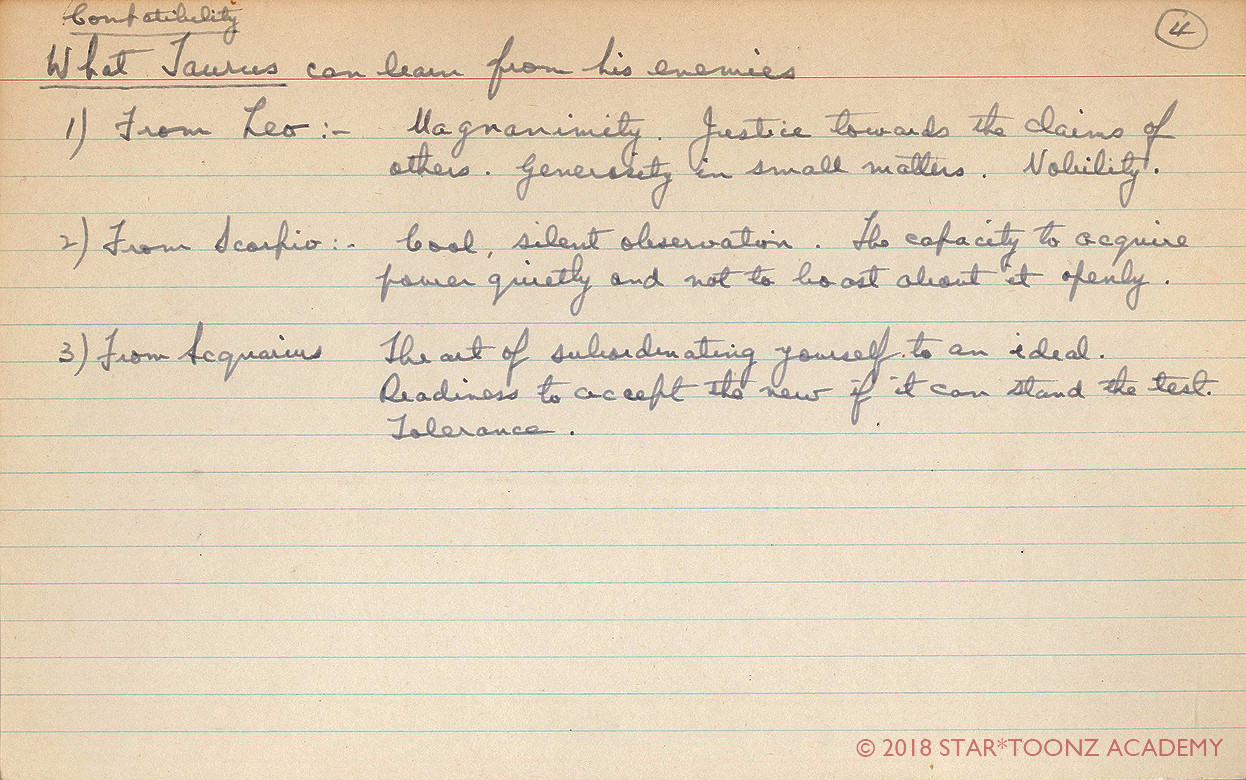 Compatibility
4
What Taurus can learn from his enemies
1) From Leo :- Magnanimity. Justice towards the claims of
others. Generosity in small matters. Nobility.
2) From Scorpio :- Cool, silent observation. The capacity to acquire
power quietly and not to boast about it openly.
3) From Acquarius The art of subordinating yourself to an ideal.
Readiness to accept the new if it can stand the test.
Tolerance.
© 2018 STAR*TOONZ ACADEMY